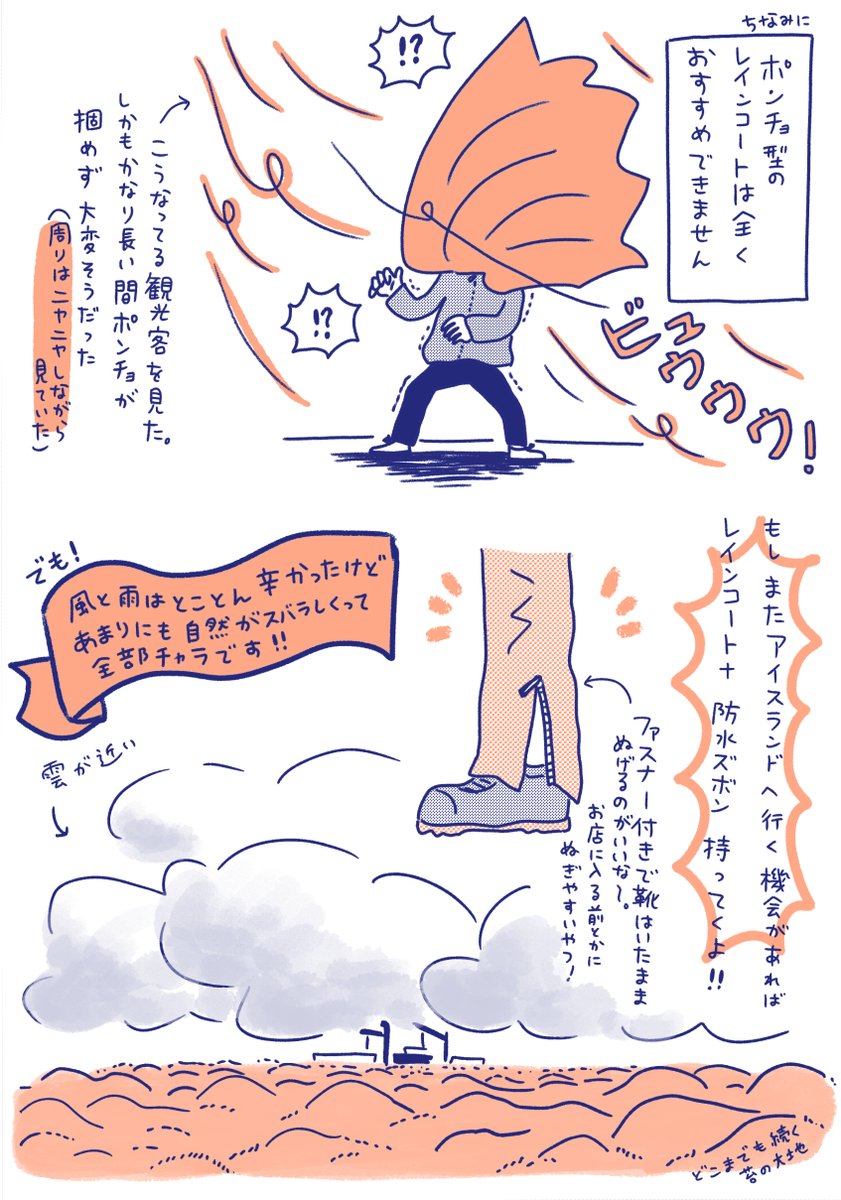 ちなみに
ポンチョ型の
レインコートは全く
おすすめできません
!?
!?
ビュウウウ!
こうなってる観光客を見た。
しかもかなり長い間ポンチョが
掴めず大変そうだった
(周りはニヤニヤしながら
見ていた)
もしまたアイスランドへ行く機会があれば
レインコート+防水ズボン持ってくよ!!
ファスナー付きで靴はいたまま
ぬげるのがいいな〜。
お店に入る前とかに
ぬぎやすいやつ!
でも!
風と雨はとことん辛かったけど
あまりにも自然がスバラしくって
全部チャラです!!
雲が近い
どこまでも続く
苔の大地